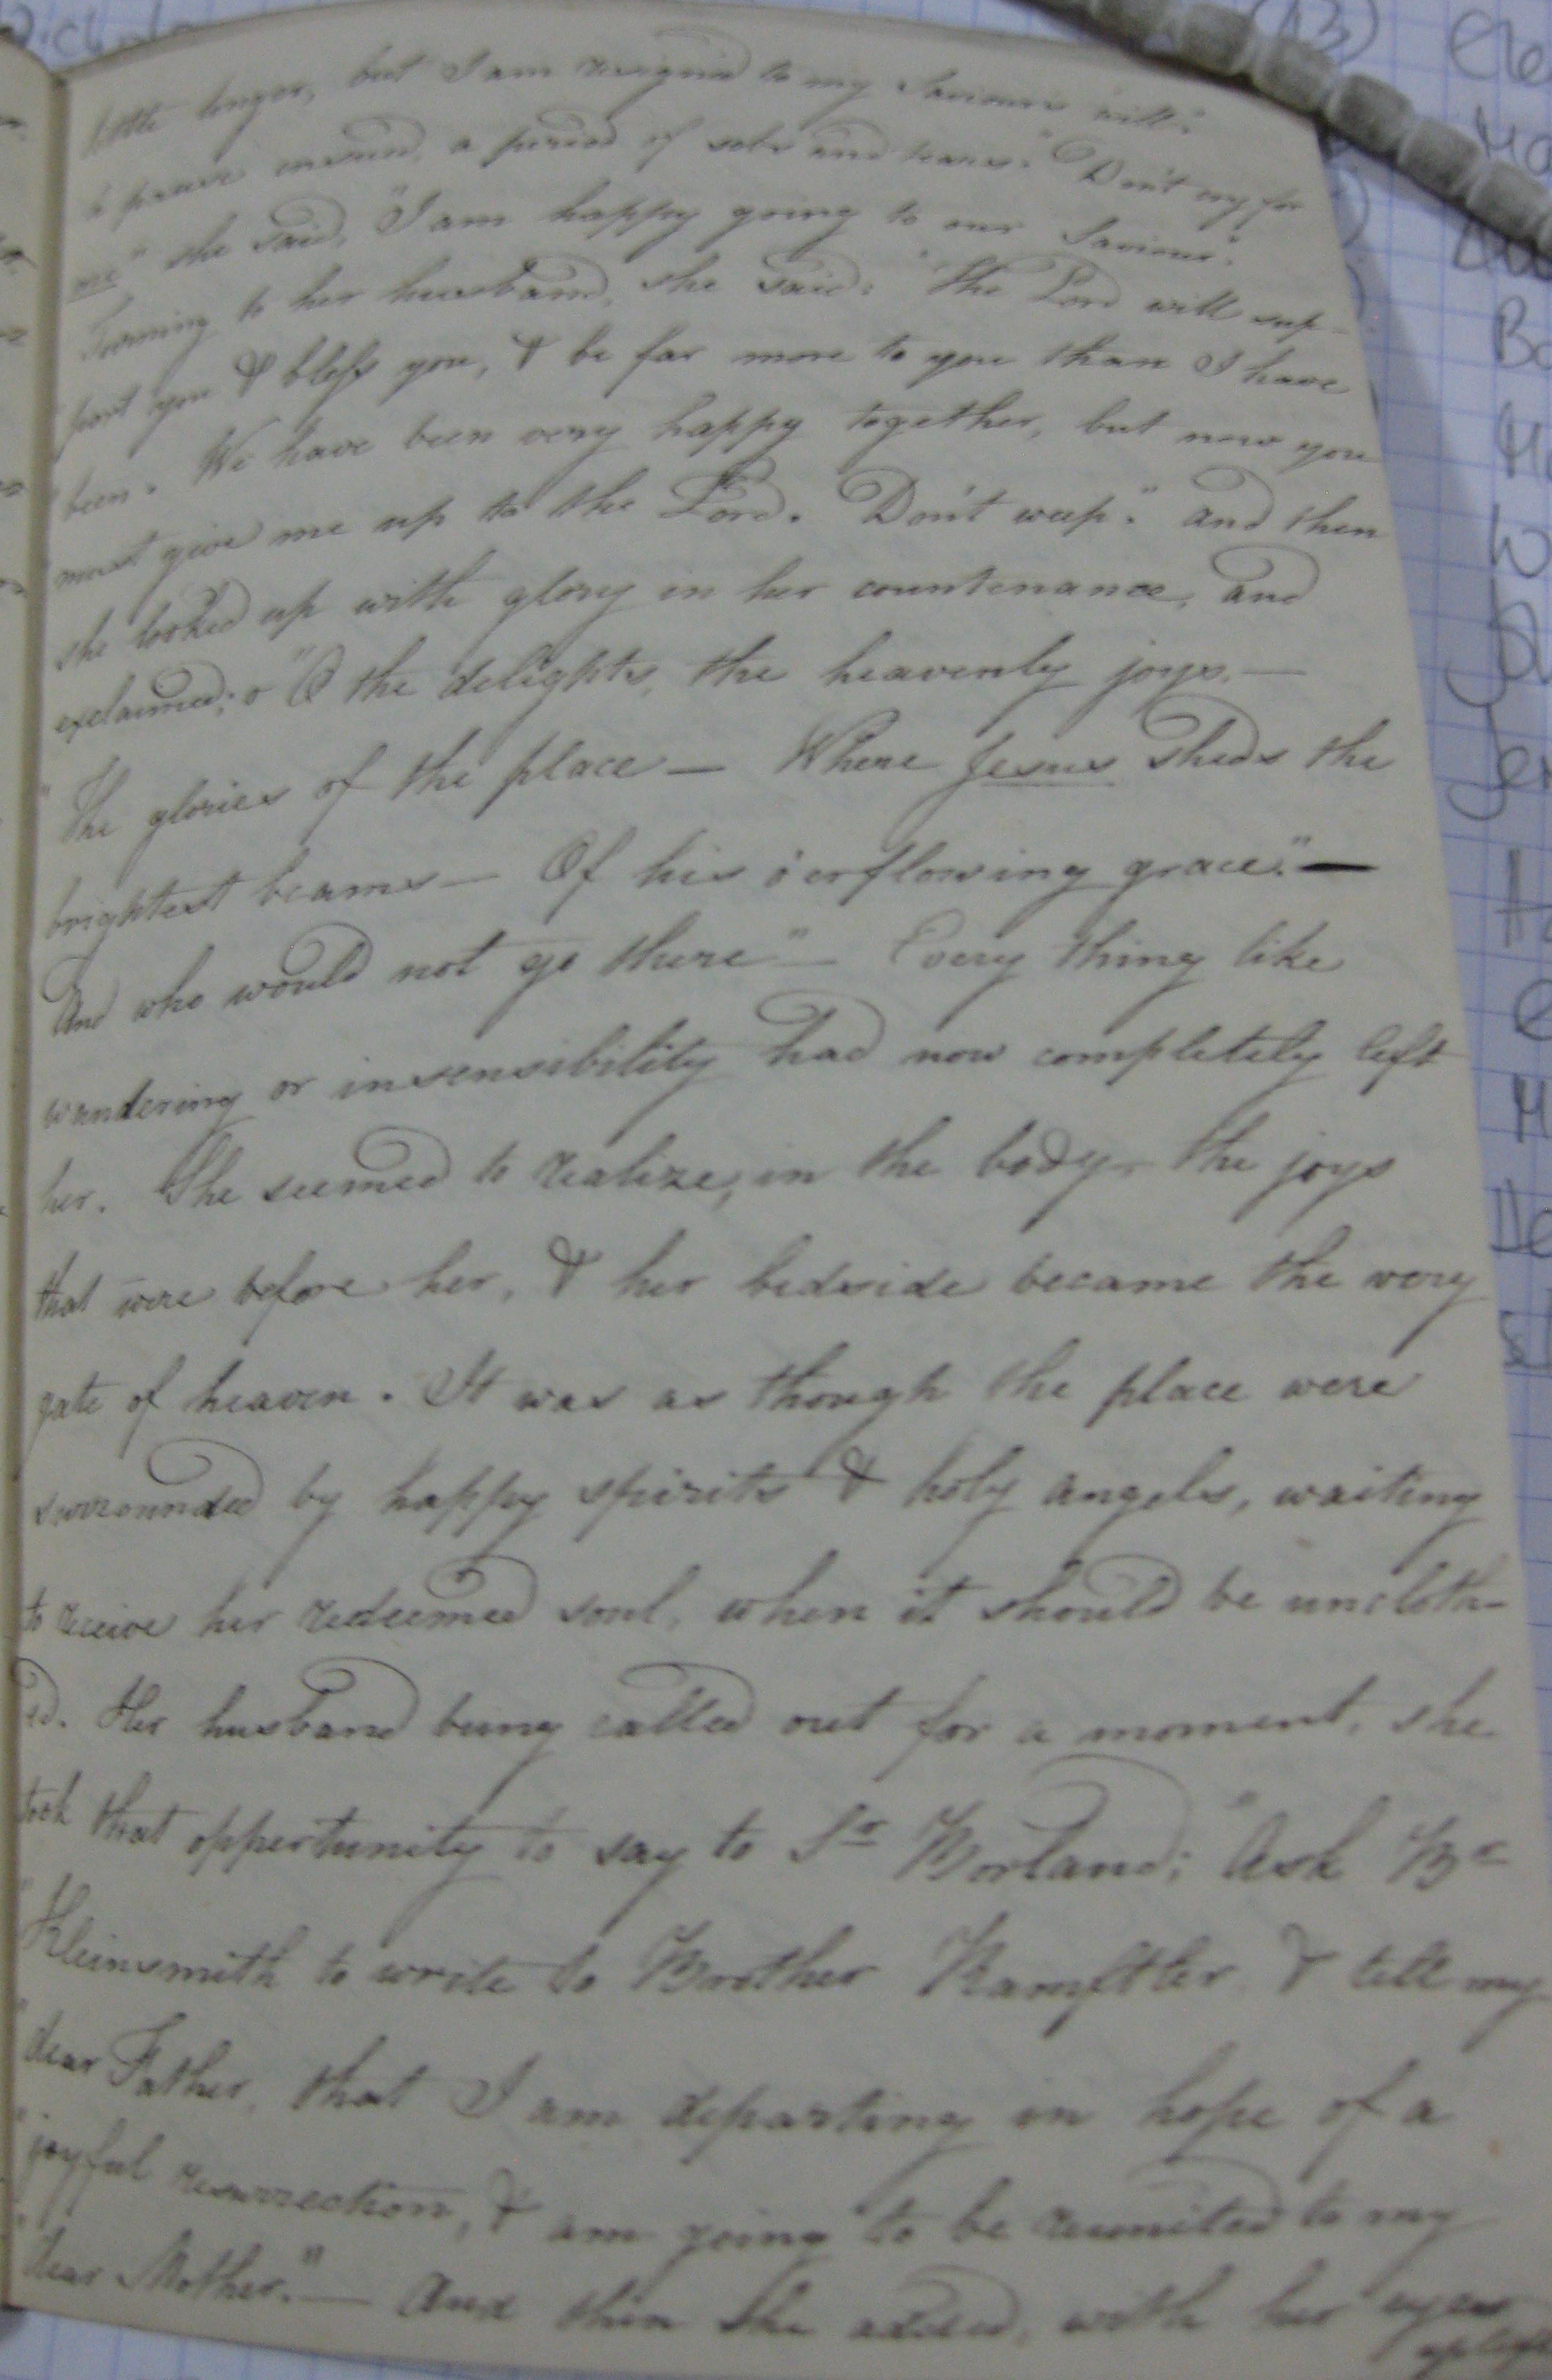 little longer, but I am resigned to my Saviours will."
A pause ensued, a period of sobs and tears. "Don't cry for
me" she said, "I am happy going to our Saviour".
Turning to her husband, she said: "the Lord will sup-
"port you & bless you, & be far more to you than I have
"been. We have been very happy together, but now you
"must give me up to the Lord. Don't weep." and then
she looked up with glory in her countenance, and
exclaimed; "O the delights, the heavenly joys. —
"The glories of the place — Where Jesus sheds the
brightest beams — Of his o'erflowing grace." —
And who would not go there" — Every thing like
wandering or insensibility had now completely left
her. She seemed to realize, in the body, the joys
that were before her, & her bedside became the very
gate of heaven. It was as though the place were
surrounded by happy spirits & holy angels, waiting
to receive her redeemed soul, when it should be uncloth-
ed. Her husband being called out for a moment, she
took that oppertunity to say to Sr Borland; "Ask Br
"Kleinsmith to write to Brother Ramftler & tell my
"dear Father, that I am departing in hope of a
"joyful resurrection, & am going to be reunited to my
"dear Mother." — And then she added, with her eyes